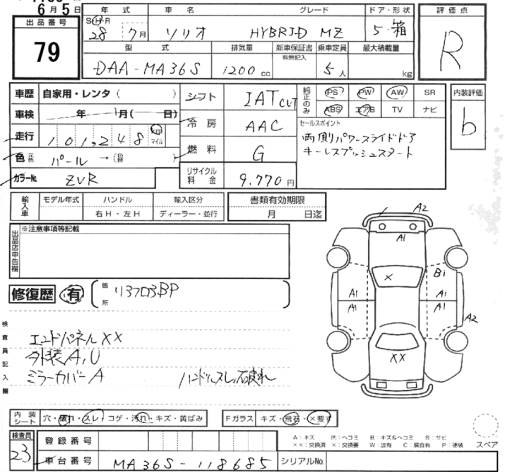 6月5日
出品番号
79
年式
車名
グレード
ドア・形状
評価点
28 7月
ソリオ
HYBRID MZ
5・箱
R
型式
排気量
新車保証書
有無記入
乗車定員
最大積載量
DAA-MA36S
1200cc
5人
kg
車歴
自家用・レンタ( )
シフト
IAT CVT
純正のみ
PS PW AW SR
ABS エアB TV ナビ
内装評価
b
車検
年 月( 日)
冷房
AAC
セールスポイント
両側パワースライドドア
キーレスプッシュスタート
走行
101,248
km
マイル
燃料
G
色
パール →
カラーNo.
ZVR
リサイクル料金
9,770円
輸入車
モデル年式
ハンドル
右H・左H
輸入区分
ディーラー・並行
書類有効期限
月 日迄
出品店申告欄
※注意事項等記載
修復歴
有
箇所
検査員記入欄
エンドパネルXX
外装A,U
ミラーカバーA
A2
A1
B1
A1
A1
A2
X
XX
内装シート
穴・破れ・スレ・コゲ・汚れ・キズ・黄ばみ
Fガラス
キズ・飛石・
検査員
23
登録番号
車台番号
MA36S-118685
シリアルNo.
スペア